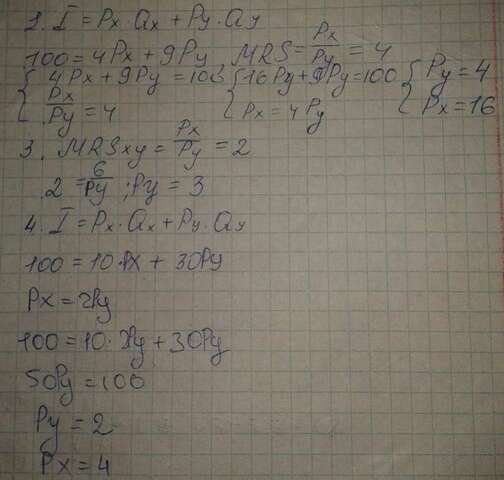 2. I = Px · Qx + Py · Qy
100 = 4Px + 9Py, MRS = Px/Py = 4
{ 4Px + 9Py = 100 { 16Py + 9Py = 100 { Py = 4
Px/Py = 4 Px = 4Py Px = 16
3. MRSxy = Px/Py = 2
2 = 6/Py ; Py = 3
4. I = Px · Qx + Py · Qy
100 = 10Px + 30Py
Px = 2Py
100 = 10 · 2Py + 30Py
50Py = 100
Py = 2
Px = 4